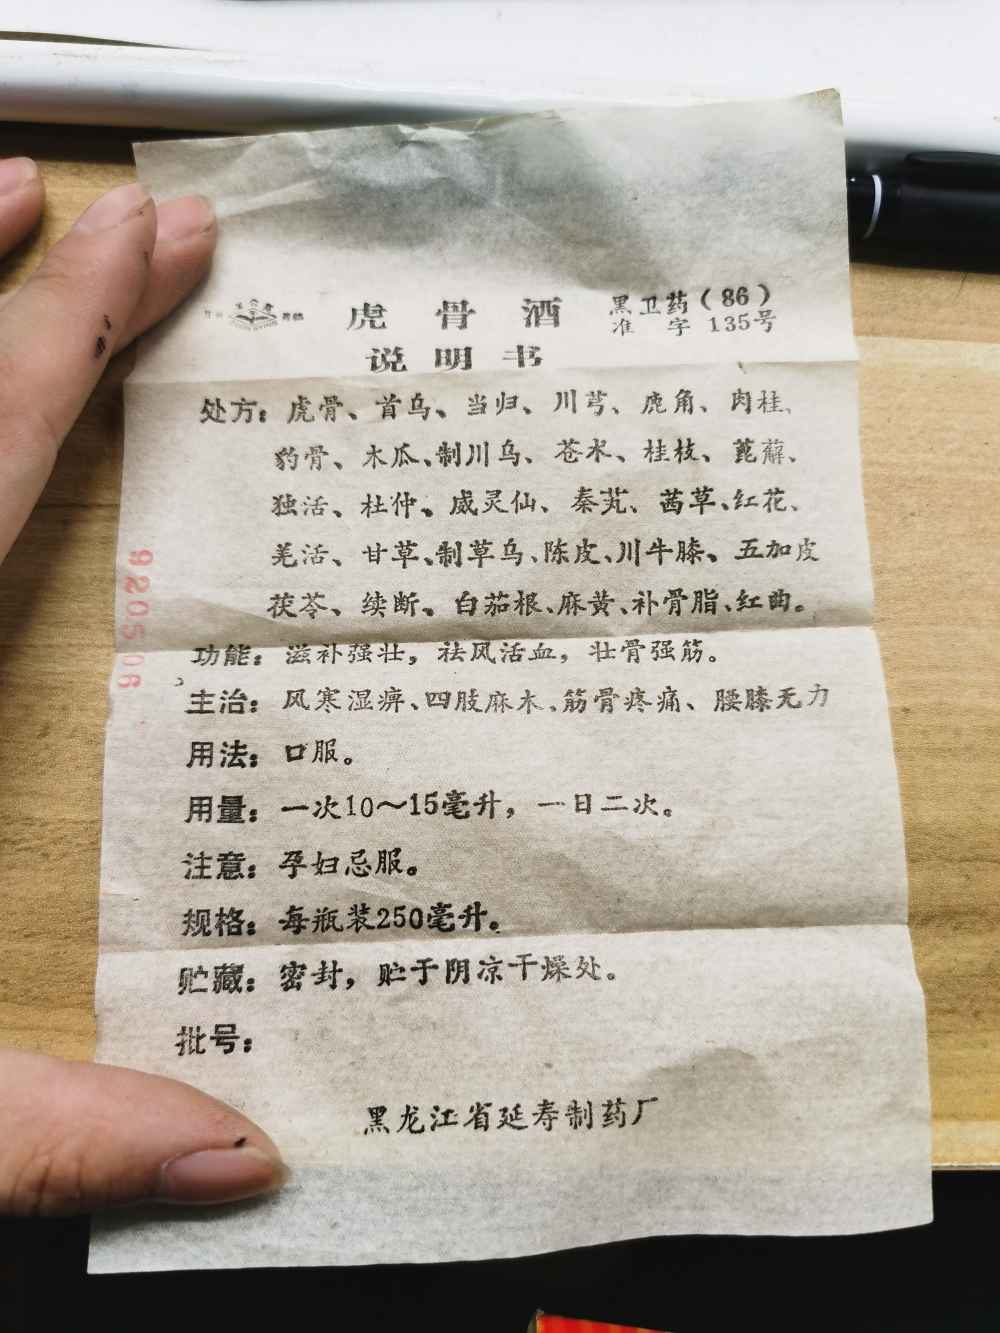 虎骨酒
黑卫药(86)
准字135号
说明书
处方：虎骨、首乌、当归、川芎、鹿角、肉桂、
豹骨、木瓜、制川乌、苍术、桂枝、萆薢、
独活、杜仲、威灵仙、秦艽、茜草、红花、
羌活、甘草、制草乌、陈皮、川牛膝、五加皮
茯苓、续断、白茄根、麻黄、补骨脂、红曲。
功能：滋补强壮，祛风活血，壮骨强筋。
主治：风寒湿痹、四肢麻木、筋骨疼痛、腰膝无力
用法：口服。
用量：一次10～15毫升，一日二次。
注意：孕妇忌服。
规格：每瓶装250毫升。
贮藏：密封，贮于阴凉干燥处。
批号：
黑龙江省延寿制药厂
920506